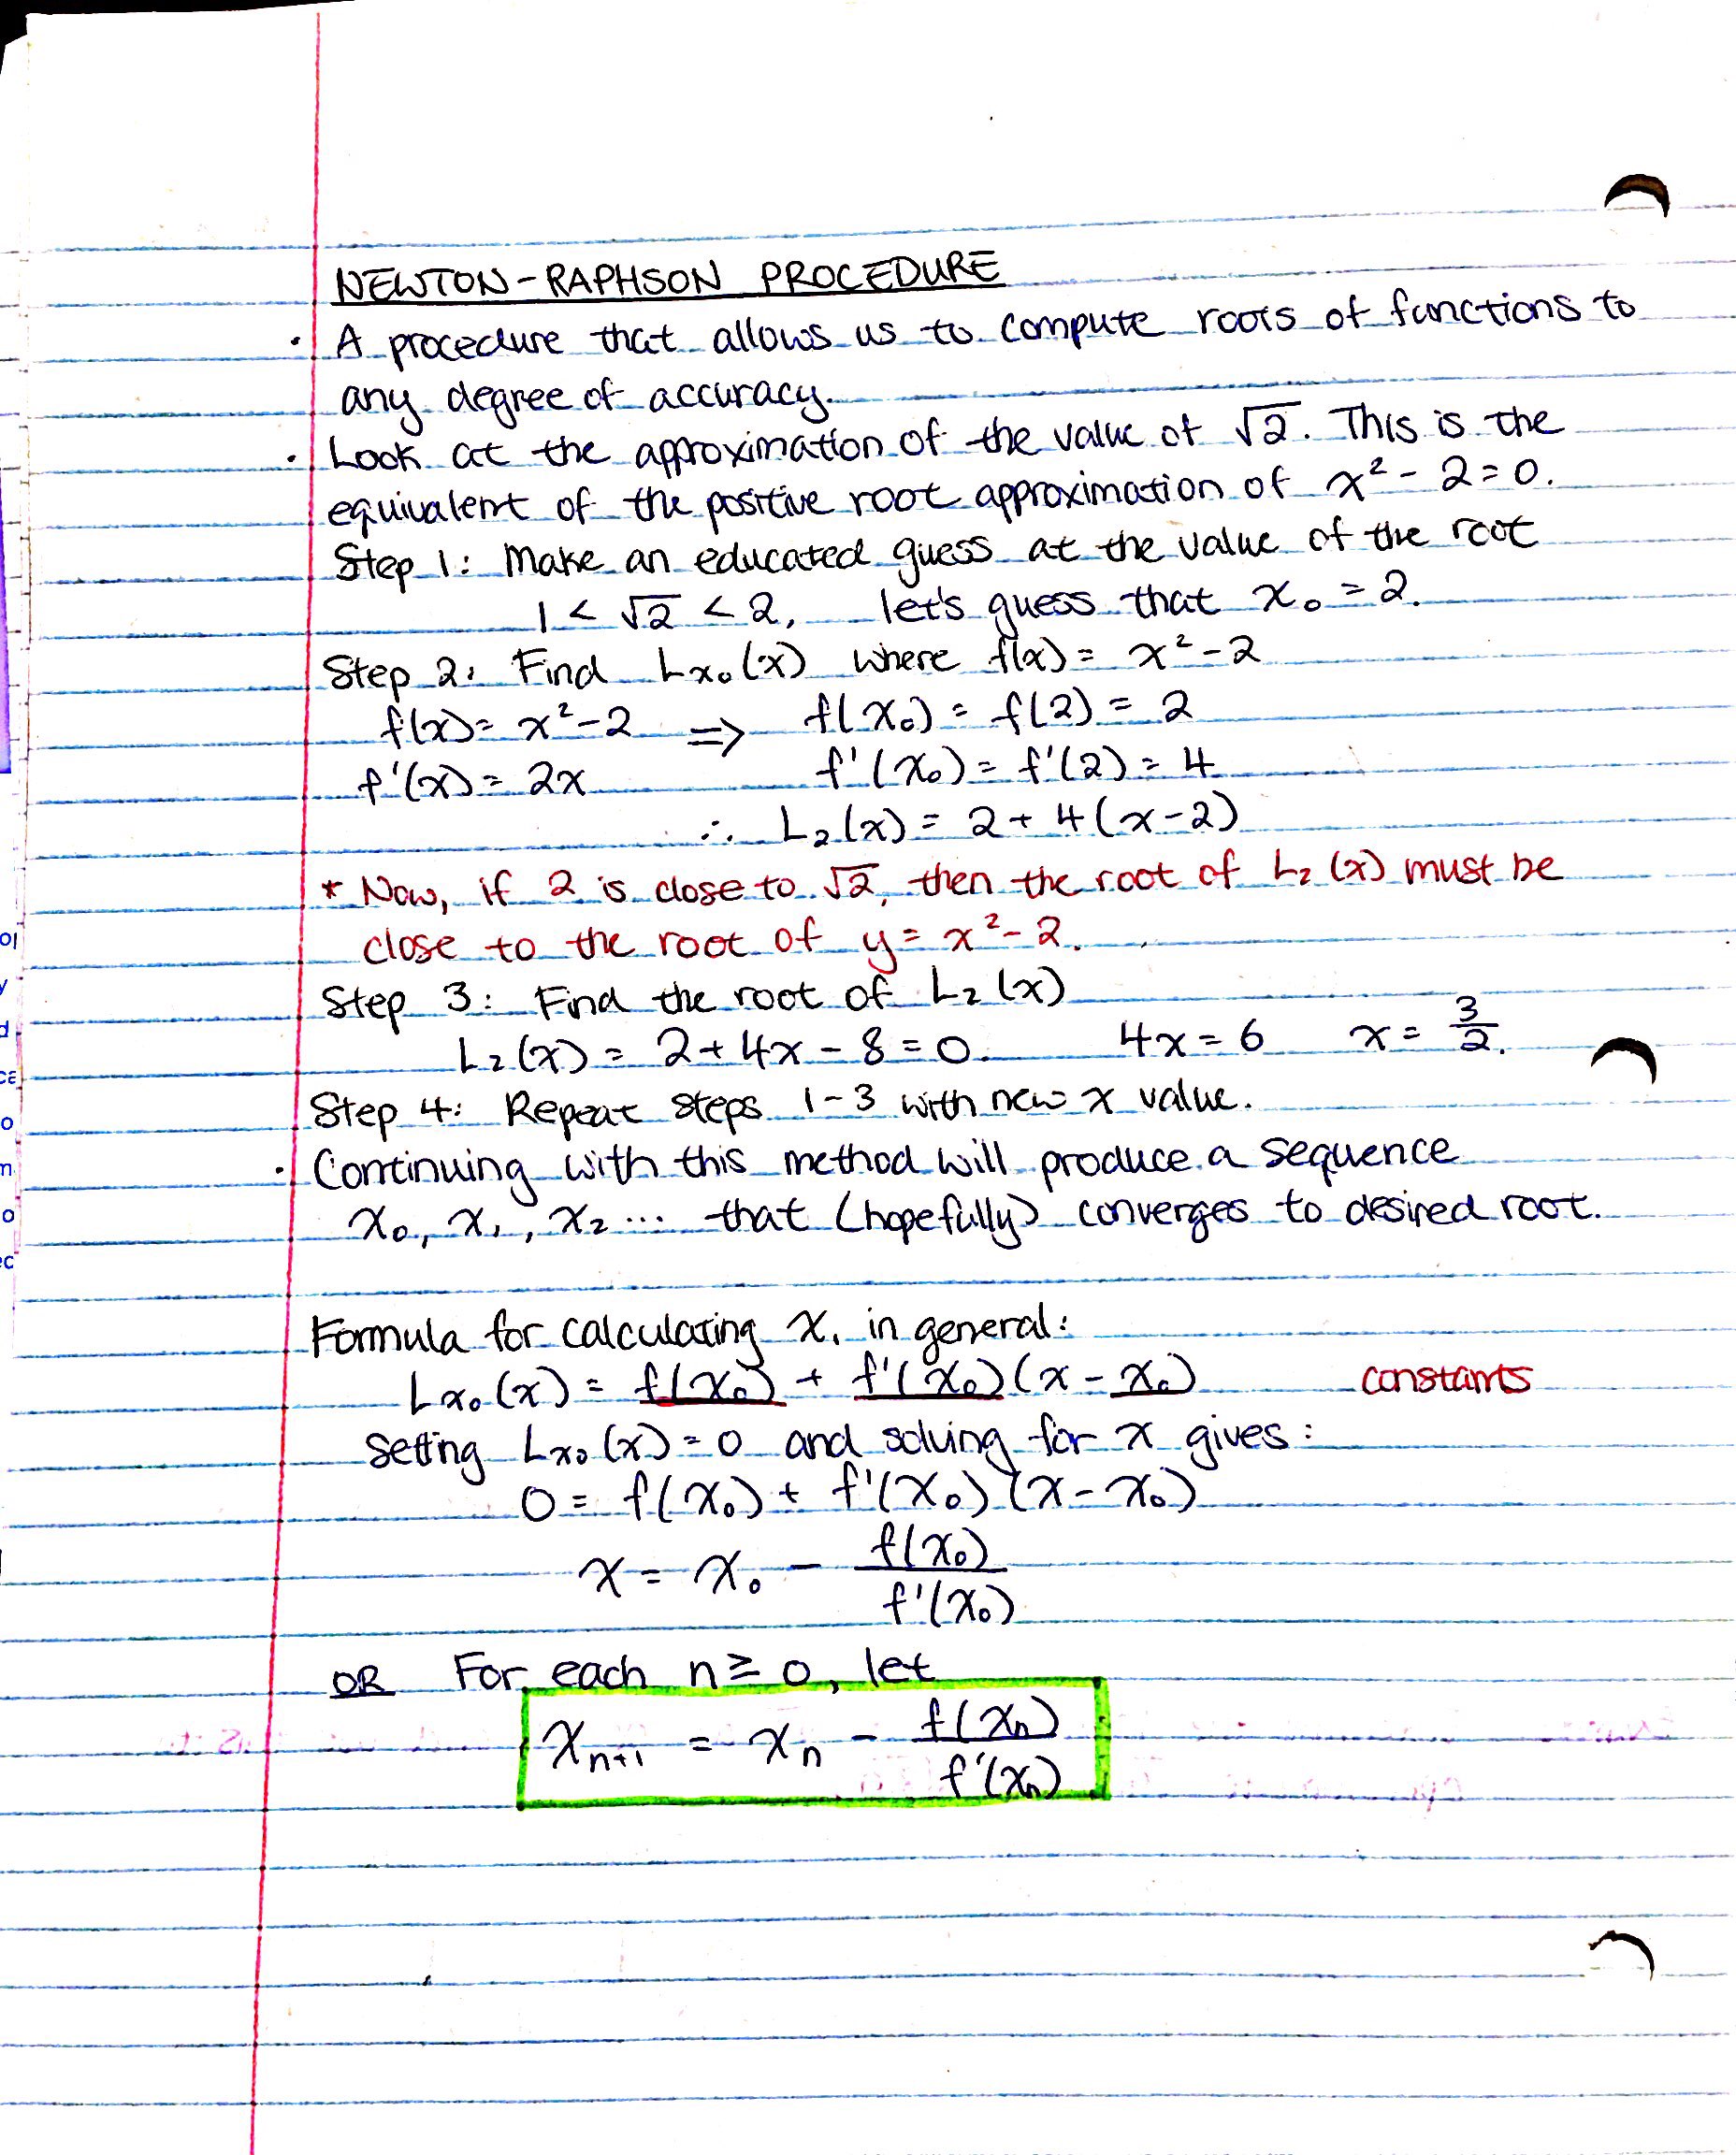 NEWTON-RAPHSON PROCEDURE
· A procedure that allows us to compute roots of functions to
any degree of accuracy.
· Look at the approximation of the value of √2. This is the
equivalent of the positive root approximation of x² - 2 = 0.
Step 1: Make an educated guess at the value of the root
1 < √2 < 2, let's guess that x₀ = 2.
Step 2: Find Lx₀(x) where f(x) = x² - 2
f(x) = x² - 2 ⇒ f(x₀) = f(2) = 2
f'(x) = 2x f'(x₀) = f'(2) = 4
∴ L₂(x) = 2 + 4(x - 2)
* Now, if 2 is close to √2, then the root of L₂(x) must be
close to the root of y = x² - 2.
Step 3: Find the root of L₂(x)
L₂(x) = 2 + 4x - 8 = 0. 4x = 6 x = 3/2.
Step 4: Repeat steps 1-3 with new x value.
· Continuing with this method will produce a sequence
x₀, x₁, x₂ ... that (hopefully) converges to desired root.
Formula for calculating x₁ in general:
Lx₀(x) = f(x₀) + f'(x₀)(x - x₀) constants
Setting Lx₀(x) = 0 and solving for x gives:
0 = f(x₀) + f'(x₀)(x - x₀)
x = x₀ - f(x₀)/f'(x₀)
OR For each n ≥ 0, let
xₙ₊₁ = xₙ - f(xₙ)/f'(xₙ)